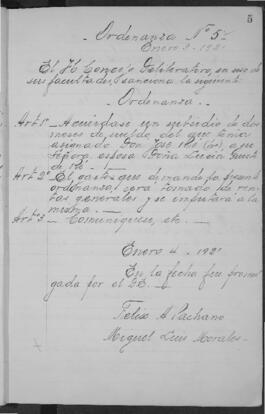 5
Ordenanza Nº 5
Enero 3-192
El H. Concejo Deliberativo, en uso de
sus facultades, sanciona la siguiente
Ordenanza.
Art 1º- Acuérdase un subsidio de dos
meses de sueldo del que tenía
asignado Don José a su
señora esposa Doña Lucía
Art. 2º El gasto que demande la presente
ordenanza, será tomado de ren-
tas generales y se imputará a la
misma.
Art. 3 - Comuníquese, etc.
Enero 4-192
En la fecha fue promul-
gada por el
Felix A Pachano
Miguel Luis Morales